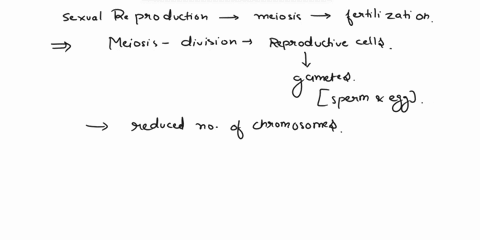 Sexual Reproduction → meiosis → fertilization.
⇒ Meiosis - division → Reproductive cells.
↓
gametes.
[sperm & egg].
→ reduced no. of chromosomes.